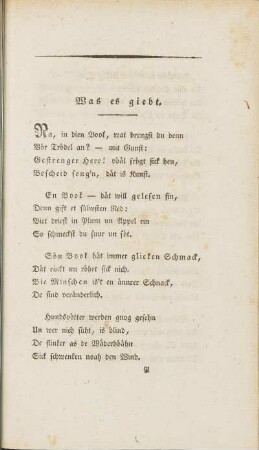 Was es giebt.
Na, in dien Book, wat brengst du denn
Vör Trödel an? — mit Gunst:
Gestrenger Herr! vööl frögt sick hen,
Bescheid seng'n, dät is Kunst.
En Book — dät will gelesen sin,
Denn gift et sülwesten Red:
Biet driest in Plum un Appel rin
So schmeckst du suur un söt.
Söm Book hät immer glieken Schmack,
Dät rückt un röhrt sick nich.
Bie Minschen is't en annrer Schnack,
De sind veränderlich.
Hundsvötter werden gnog gesehn
Un wer nich süht, is blind,
De flinker as de Wäderhähn
Sick schwenken noah den Wind.